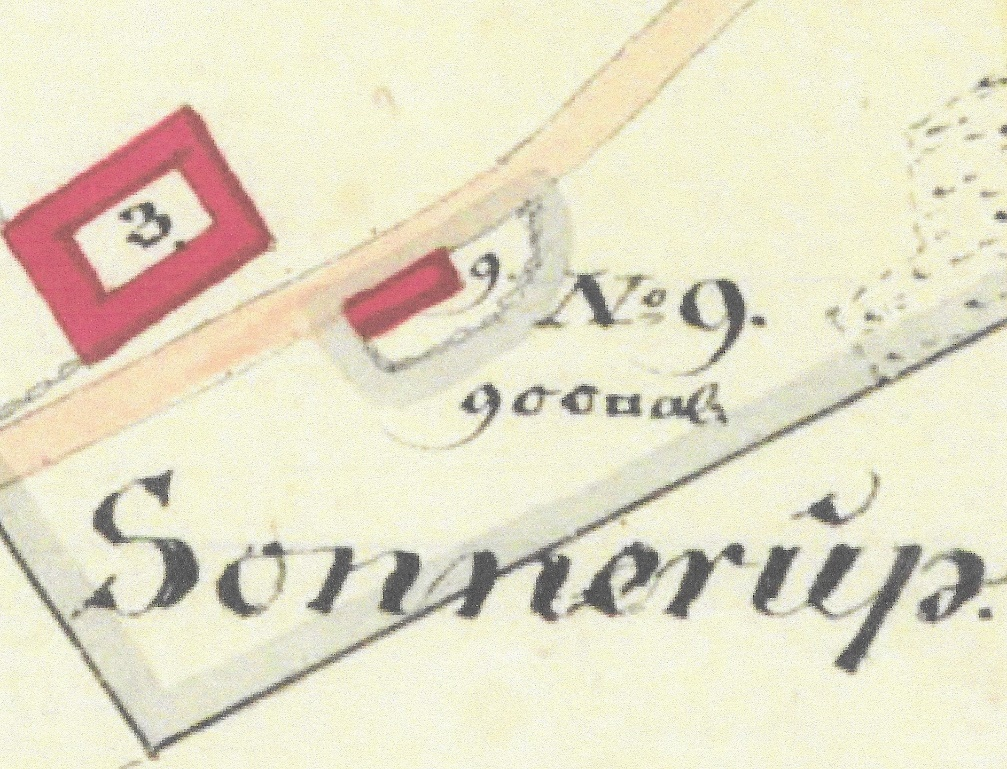 3.
9.
No 9.
900 □al:
Sonnerŭp.